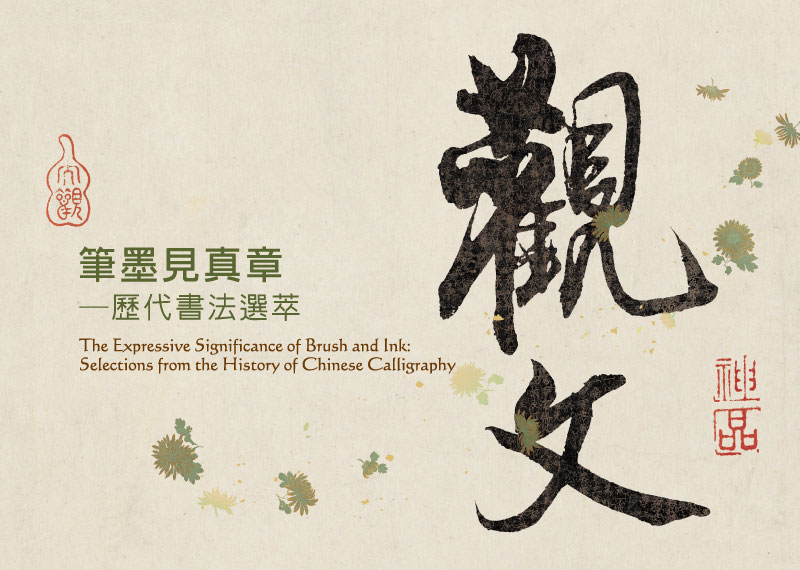 觀文
大觀
筆墨見真章
—歷代書法選萃
The Expressive Significance of Brush and Ink:
Selections from the History of Chinese Calligraphy
神品